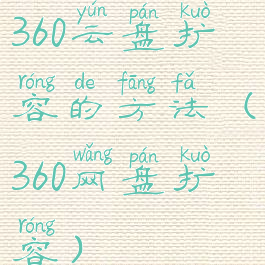 yún pán kuò
360云盘扩
róng de fāng fǎ
容的方法（
wǎng pán kuò
360网盘扩
róng
容）